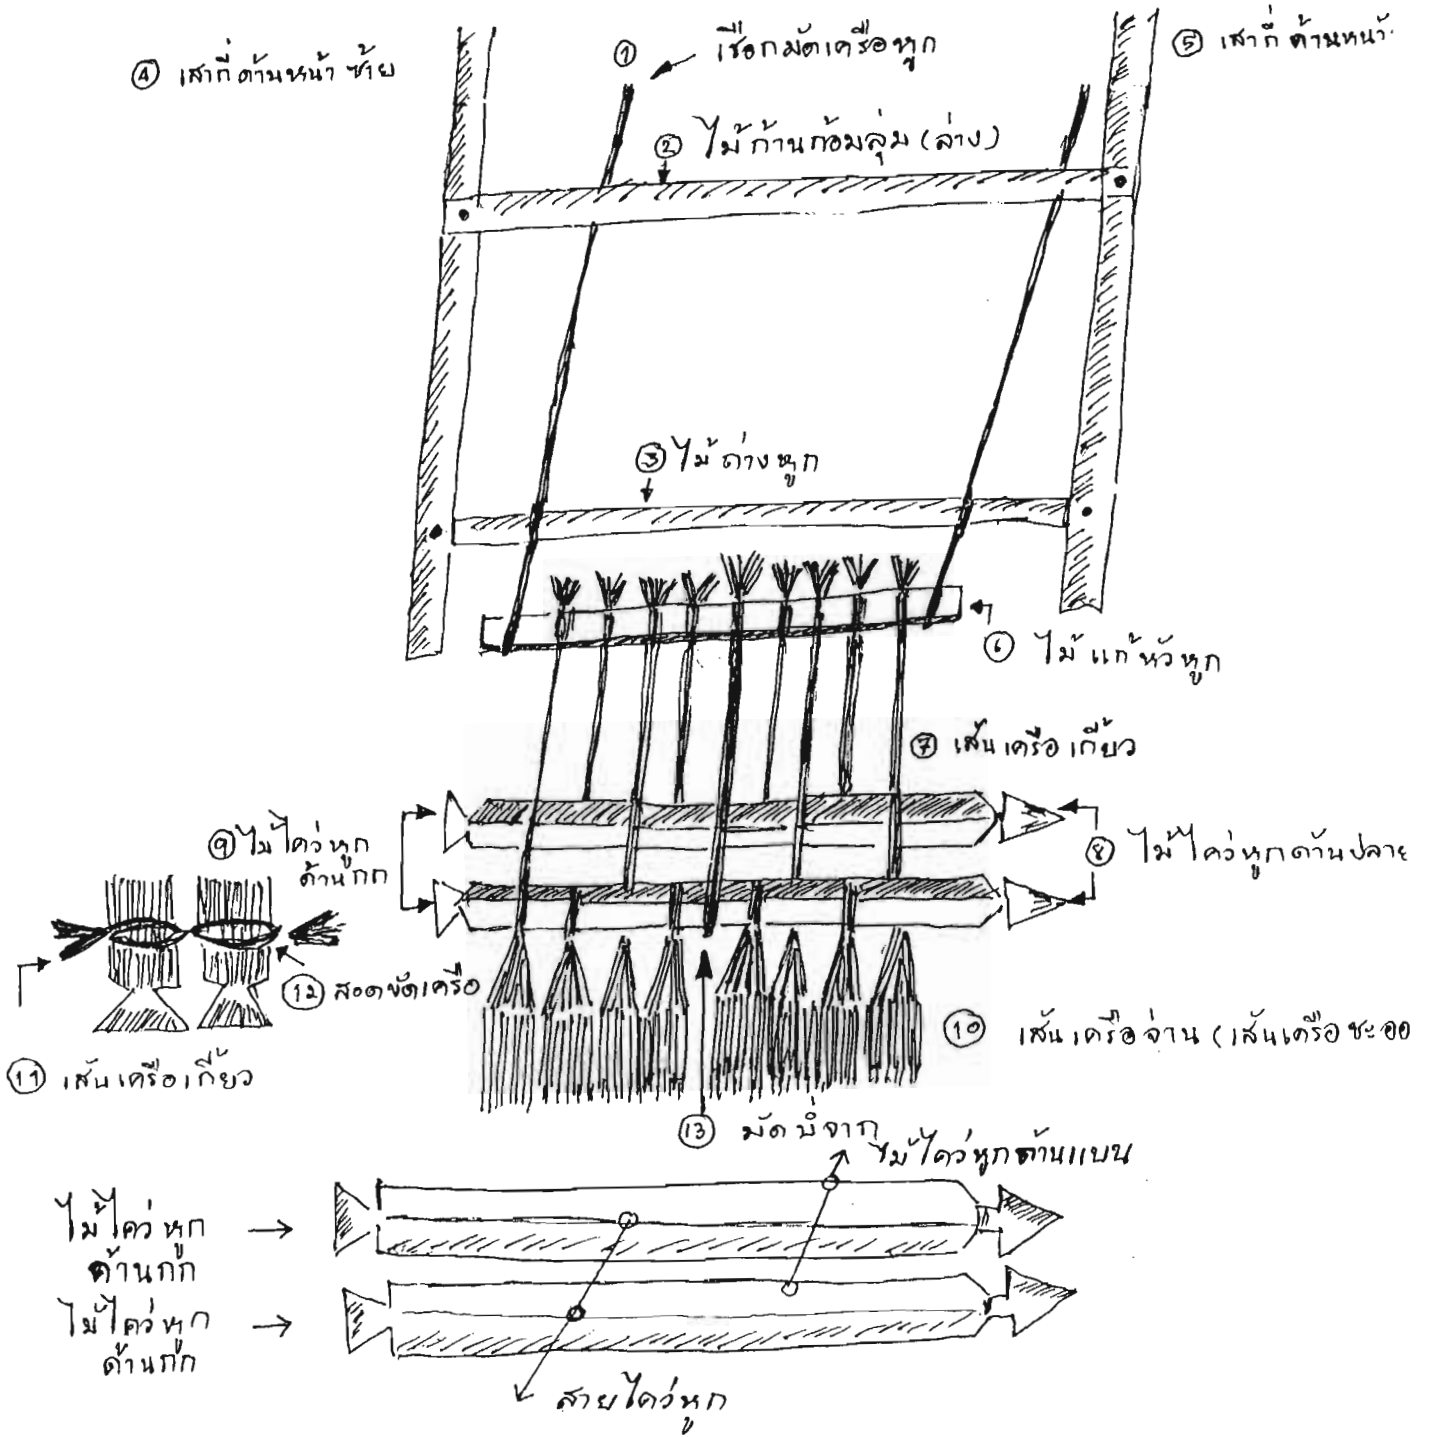 ① เชือกมัดเครือหูก
④ เสากี่ด้านหน้าซ้าย
⑤ เสากี่ด้านหน้า
② ไม้ก้านก้อมลุ่ม (ล่าง)
③ ไม้ถ่างหูก
⑥ ไม้แก้หัวหูก
⑦ เส้นเครือเกี้ยว
⑨ ไม้ไคว่หูก
ด้านกก
⑧ ไม้ไคว่หูกด้านปลาย
⑫ สอดขัดเครือ
⑩ เส้นเครือจ่าน (เส้นเครือชะออ
⑪ เส้นเครือเกี้ยว
⑬ มัดบี่จาก
ไม้ไคว่หูกด้านแบน
ไม้ไคว่หูก →
ด้านกก
ไม้ไคว่หูก →
ด้านกก
สายไคว่หูก